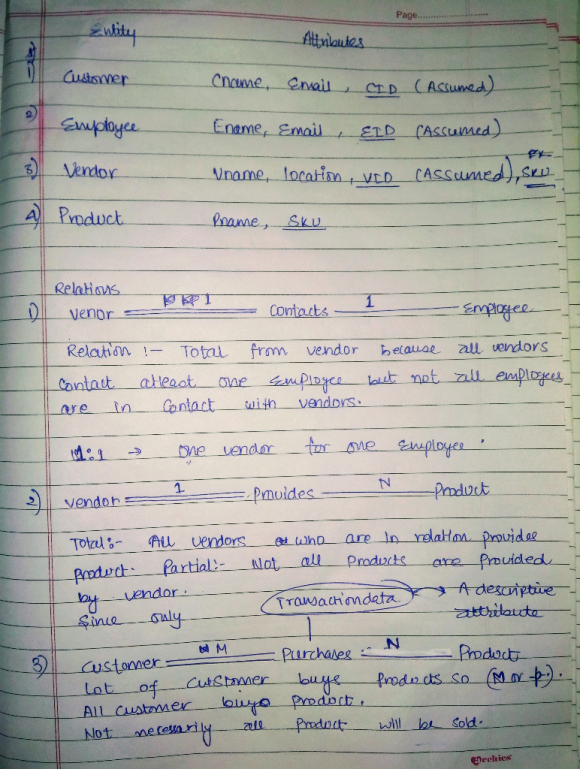 Page
Entity Attributes
1) Customer Cname, Email, CID (Assumed)
2) Employee Ename, Email, EID (Assumed)
3) Vendor Vname, location, VID (Assumed), SKU
4) Product Pname, SKU
Relations
1) venor 1 Contacts 1 Employee
Relation :- Total from vendor because all vendors
Contact atleast one Employee but not all employees
are in Contact with vendors.
1:1 → One vendor for one employee.
2) vendor 1 Provides N Product
Total:- All vendors who are in relation provides
product. Partial:- Not all Products are Provided
by vendor. Transactiondata → A descriptive
Since only attribute
3) Customer M Purchases N Product
Lot of customer buys Products so
All customer buys Product.
Not necessarily all Product will be sold.